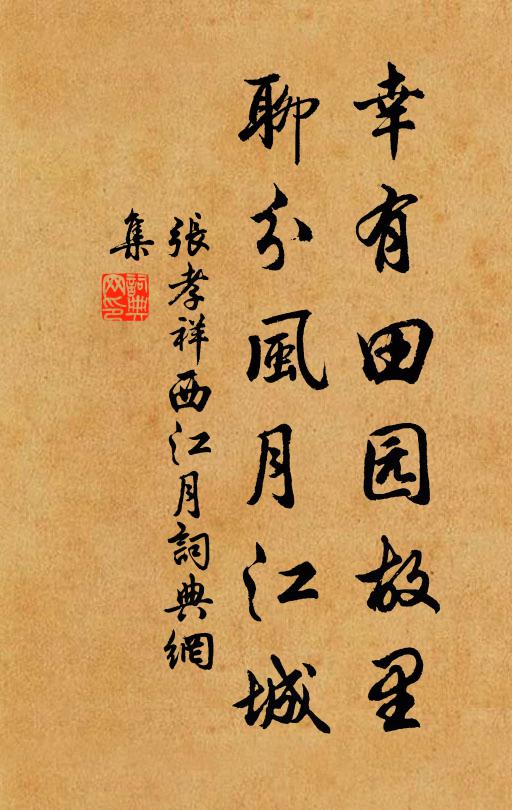 幸有田园故里
聊分風月江城
張孝祥西江月詞典網
集
詞典
网印